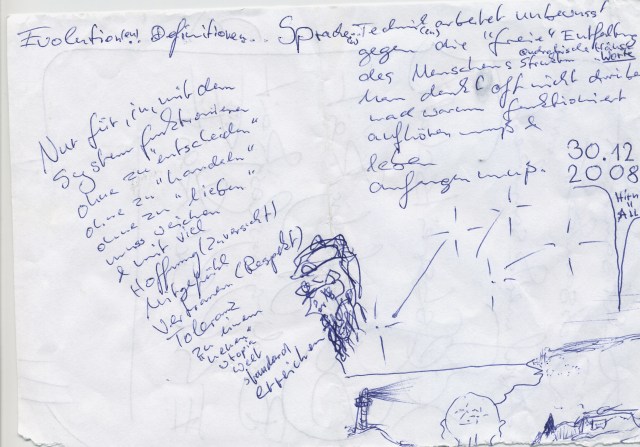 Evolution(en)... Definitionen... Sprache(n)
Technik(en) arbeitet unbewusst
gegen die "freie" Entfaltung
des Menschens
Man denkt oft nicht drüber
nach warum funktioniert
aufhören muß &
leben
anfangen muß.
Nur für, in, mit dem
System funktionieren
ohne zu "entscheiden"
ohne zu "handeln"
ohne zu "lieben"
muss weichen
& mit viel
Hoffnung (Zuversicht)
Mitgefühl
Vertrauen (Respekt)
Toleranz
zu einem
neuen
utopia
welt
standard
erreichen
30.12
2008
Hirn
All